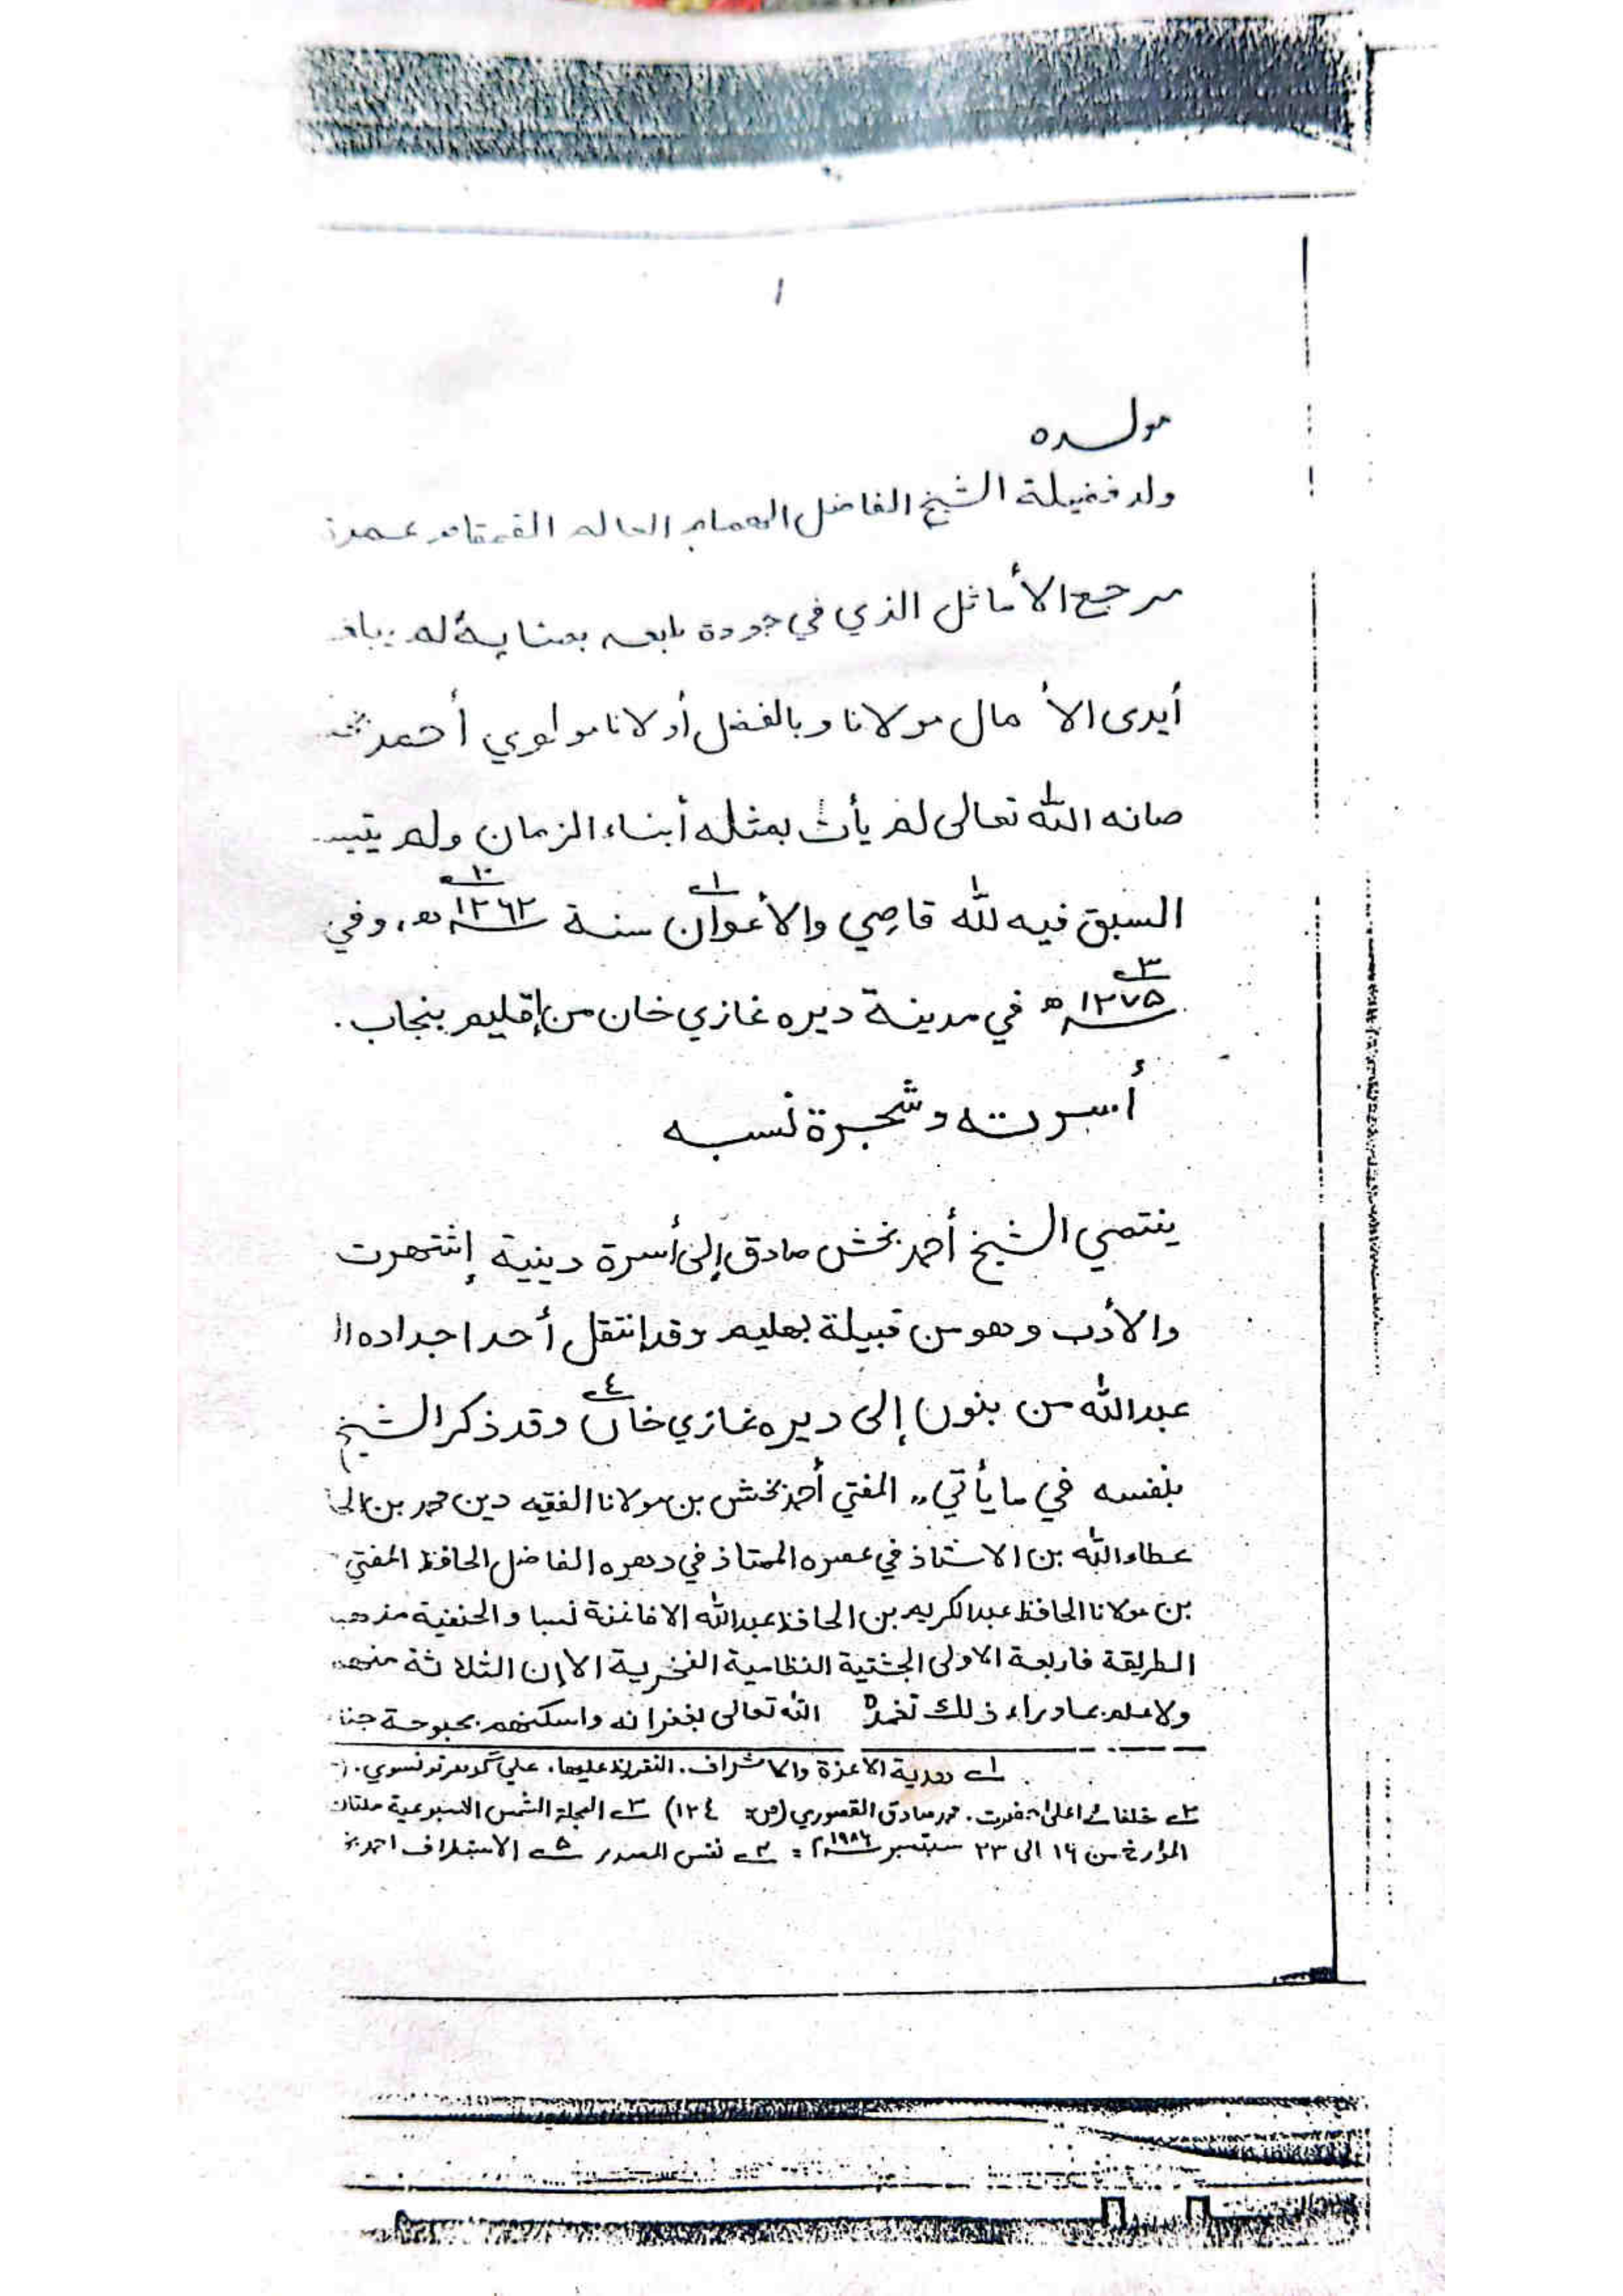 ١
مولده
ولد فضيلة الشيخ الفاضل الهمام العالم القمقام عمدة
مرجع الأماثل الذي في جودة بعناية لم
أيدى الأ مال مولانا وبالفضل أولانا مولوي أحمد
صانه الله تعالى لم يأت بمثله أبناء الزمان ولم
السبق فيه لله قاصي والأعوان ١ سنة ١٢٦٢ھ، وفي
١٢٧٥ھ ٣ في مدينة ديره غازي خان من إقليم بنجاب.
أسرته وشجرة نسبه
ينتمي الشيخ أحمد بخش صادق إلى أسرة دينية إشتهرت
والأدب وهو من قبيلة بهليم وقد إنتقل أحد اجداده
عبدالله من بنون إلى ديره غازي خان ٤ وقد ذكر الشيخ
بنفسه في ما يأتي ,, المفتي أحمد بخش بن مولانا الفقيه دين محمد بن
عطاء الله بن الاستاذ في عصره الممتاذ في دهره الفاضل الحافظ المفتي
بن مولانا الحافظ عبدالكريم بن الحافظ عبدالله الافاغنة نسبا والحنفية
الطريقة فاربعة الاولى الچشتية النظامية الفخرية الا إن الثلاثة منهم
ولا علم بما وراء ذلك تغمدہ الله تعالى بغفرانه واسكنهم بحبوحة
١ هدية الاعزة والاشراف. التقريظ عليها. علي گوهر تونسوي.
٢ خلفائے اعلیٰ حضرت. محمد صادق القصوري (ص: ١٢٤) ٣ المجلة الشمس الاسبوعية ملتان
المؤرخ من ١٦ الى ٢٣ سبتمبر ١٩٨٦م: ٤ نفس المصدر ٥ الاستطراف احمد